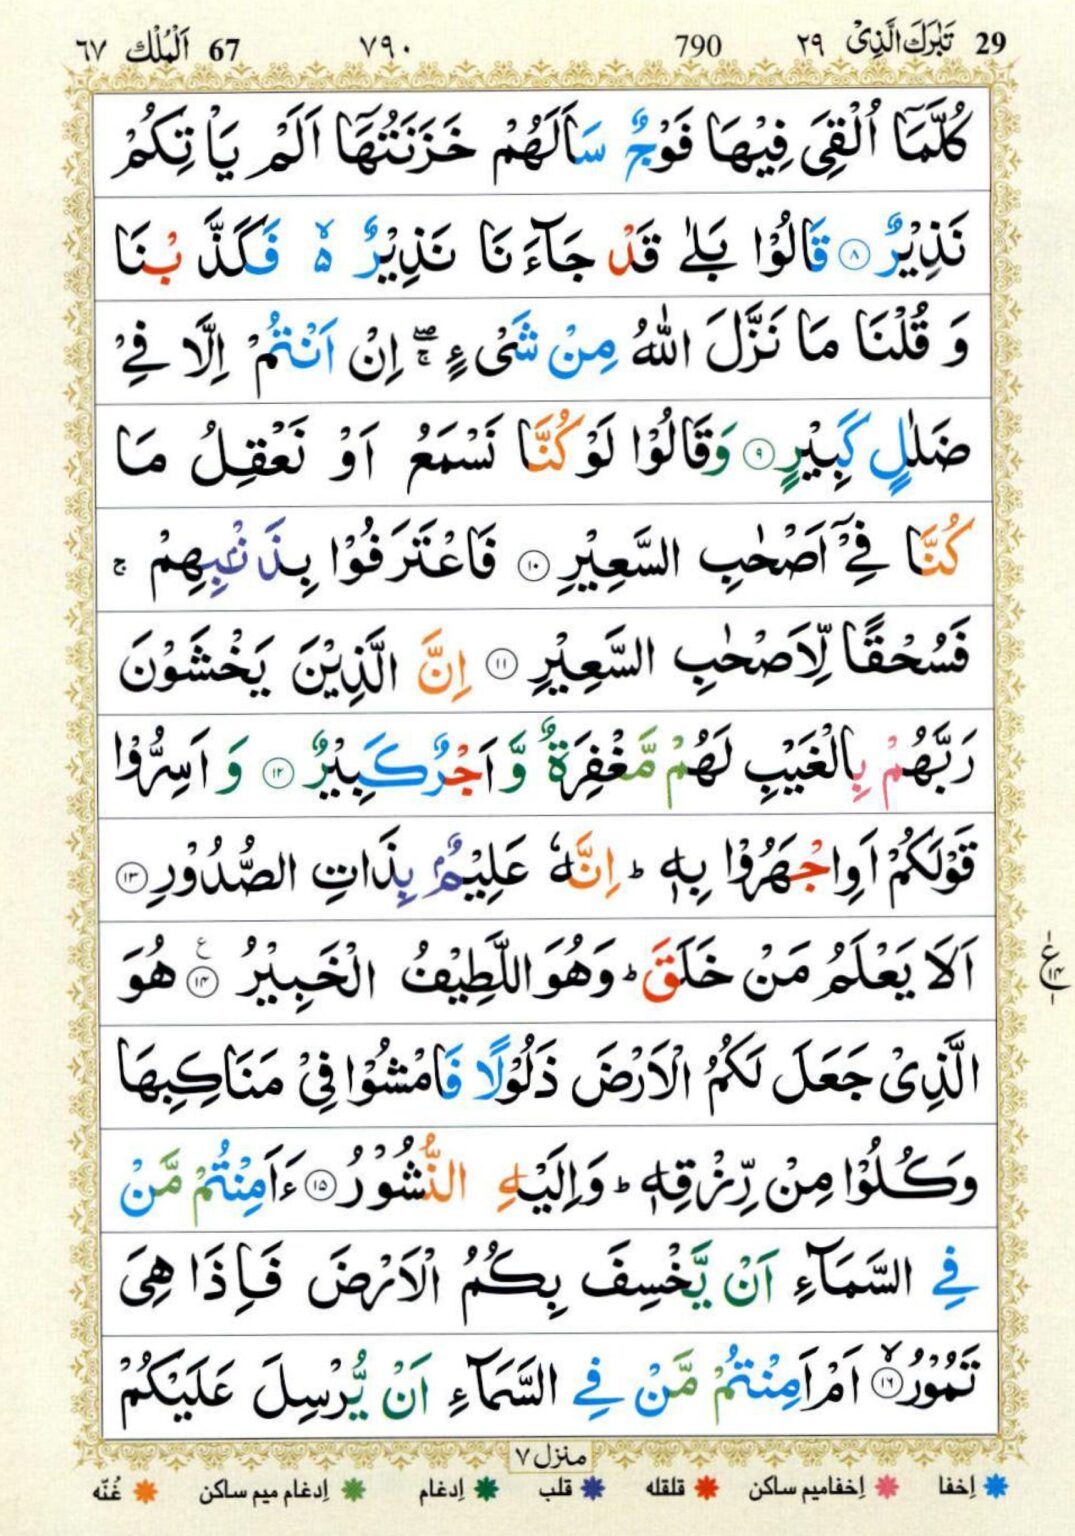 29 تَبٰرَكَ الَّذِیْ ٢٩ 790 ٧٩٠ 67 اَلْمُلْك ٦٧
كُلَّمَاۤ اُلْقِیَ فِیْهَا فَوْجٌ سَاَلَهُمْ خَزَنَتُهَاۤ اَلَمْ یَاْتِكُمْ
نَذِیْرٌ ٨ قَالُوْا بَلٰی قَدْ جَآءَنَا نَذِیْرٌ ۙ۬ فَكَذَّبْنَا
وَ قُلْنَا مَا نَزَّلَ اللّٰهُ مِنْ شَیْءٍ ۖۚ اِنْ اَنْتُمْ اِلَّا فِیْ
ضَلٰلٍ كَبِیْرٍ ٩ وَقَالُوْا لَوْ كُنَّا نَسْمَعُ اَوْ نَعْقِلُ مَا
كُنَّا فِیْۤ اَصْحٰبِ السَّعِیْرِ ١٠ فَاعْتَرَفُوْا بِذَنْۢبِهِمْ ۚ
فَسُحْقًا لِّاَصْحٰبِ السَّعِیْرِ ١١ اِنَّ الَّذِیْنَ یَخْشَوْنَ
رَبَّهُمْ بِالْغَیْبِ لَهُمْ مَّغْفِرَةٌ وَّ اَجْرٌ كَبِیْرٌ ١٢ وَ اَسِرُّوْا
قَوْلَكُمْ اَوِ اجْهَرُوْا بِهٖ ؕ اِنَّهٗ عَلِیْمٌۢ بِذَاتِ الصُّدُوْرِ ١٣
اَلَا یَعْلَمُ مَنْ خَلَقَ ؕ وَهُوَ اللَّطِیْفُ الْخَبِیْرُ ١٤ هُوَ
الَّذِیْ جَعَلَ لَكُمُ الْاَرْضَ ذَلُوْلًا فَامْشُوْا فِیْ مَنَاكِبِهَا
وَكُلُوْا مِنْ رِّزْقِهٖ ؕ وَاِلَیْهِ النُّشُوْرُ ١٥ ءَاَمِنْتُمْ مَّنْ
فِی السَّمَآءِ اَنْ یَّخْسِفَ بِكُمُ الْاَرْضَ فَاِذَا هِیَ
تَمُوْرُ ۙ ١٦ اَمْ اَمِنْتُمْ مَّنْ فِی السَّمَآءِ اَنْ یُّرْسِلَ عَلَیْكُمْ
منزل ٧
إخفا إخفامیم ساکن قلقله قلب إدغام إدغام میم ساکن غُنّه